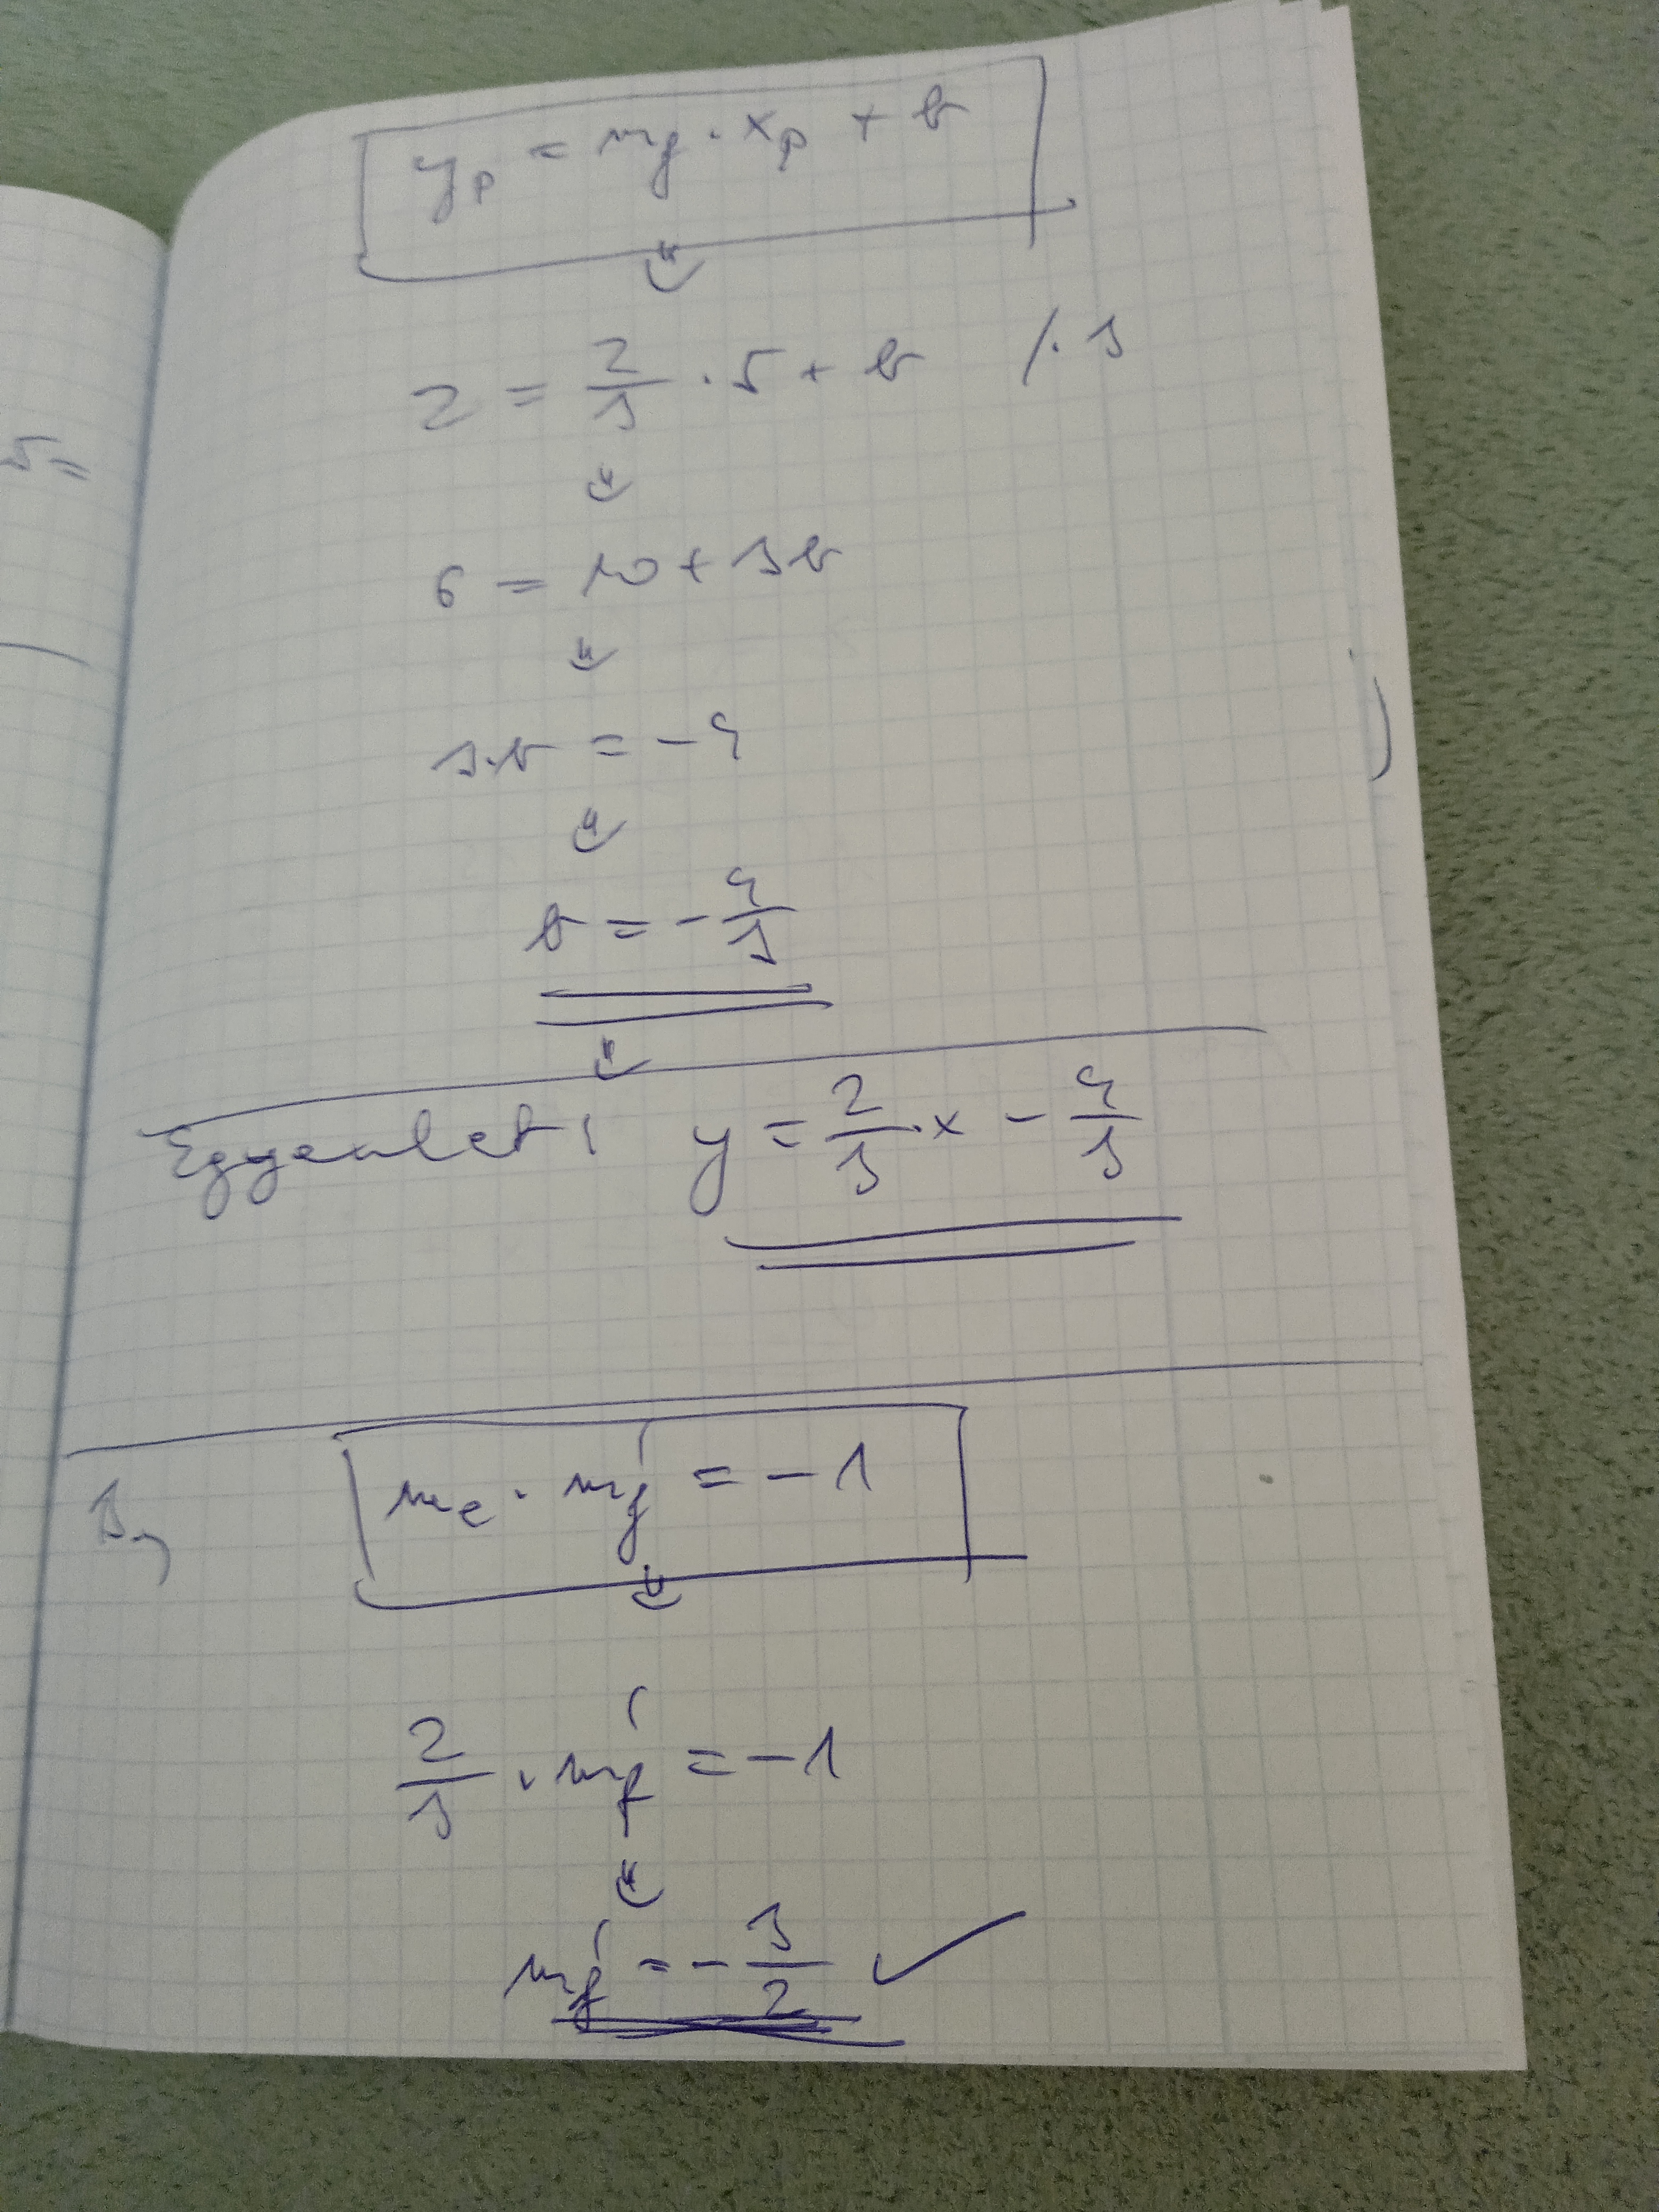 y_P = m_f · x_P + b
2 = 2/3 · 5 + b /· 3
5 =
6 = 10 + 3b
3·b = -4
b = -4/3
Egyenlet: y = 2/3 · x - 4/3
3, m_e · m_f' = -1
2/3 · m_f' = -1
m_f' = -3/2 ✓